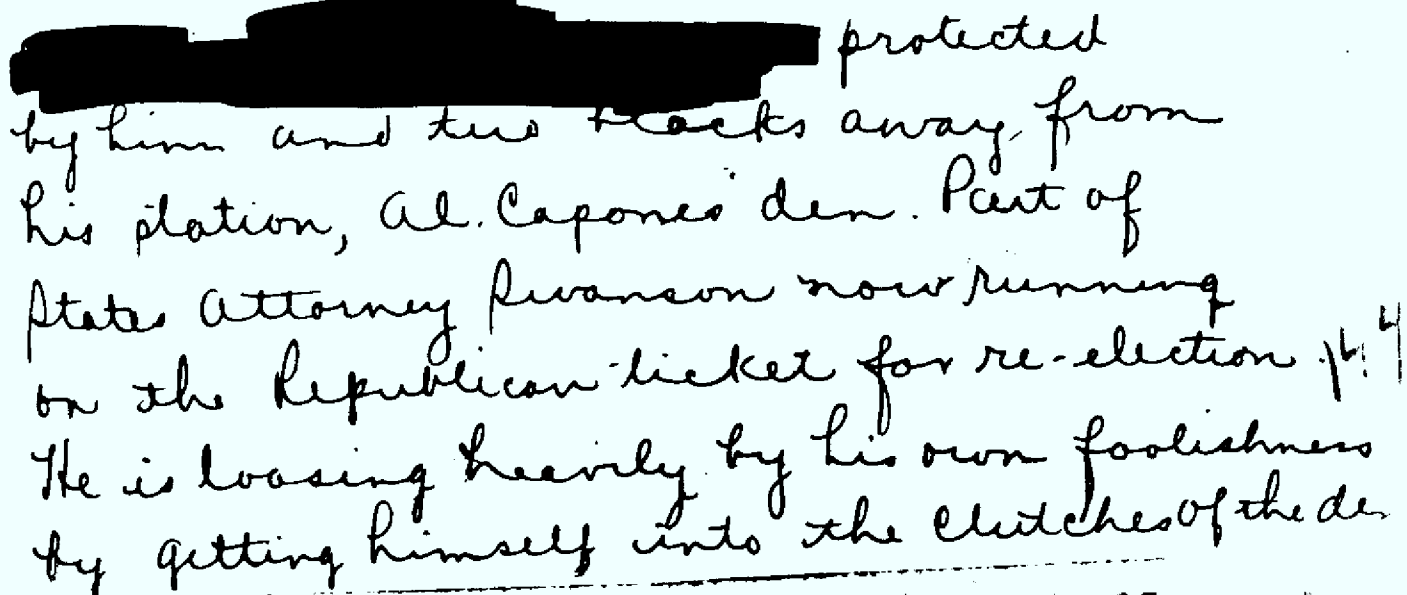 protected
by him and two blocks away from
his station, Al. Capone's den. Part of
States Attorney Swanson now running
on the Republican ticket for re-election.
He is loosing heavily by his own foolishness
by getting himself into the clutches of the